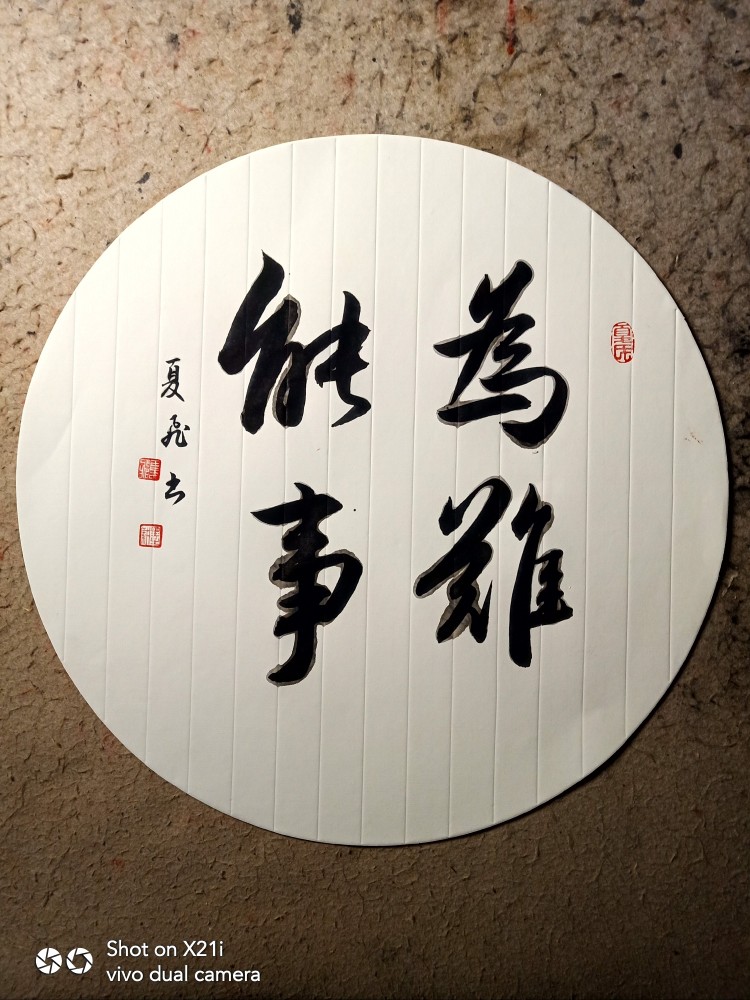 為難
能事
夏飛书
Shot on X21i
vivo dual camera